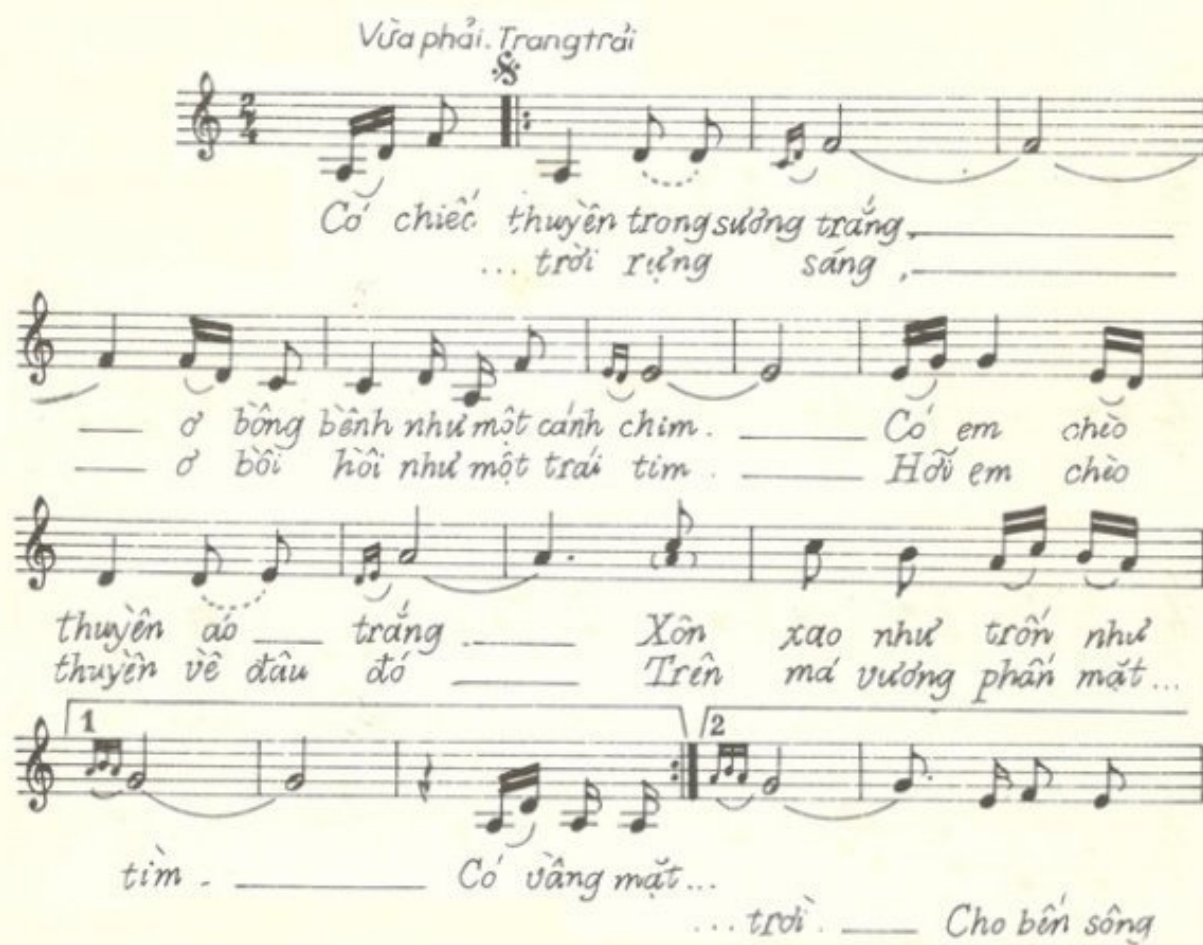 Vừa phải. Trang trải
2
4
Có chiếc thuyền trong sương trắng,
... trời rựng sáng,
ơ bồng bềnh như một cánh chim. Có em chèo
ơ bồi hồi như một trái tim. Hỡi em chèo
thuyền áo trắng. Xôn xao như trốn như
thuyền về đâu đó Trên má vương phấn mặt...
1 2
tìm. Có vầng mặt...
... trời. Cho bến sông